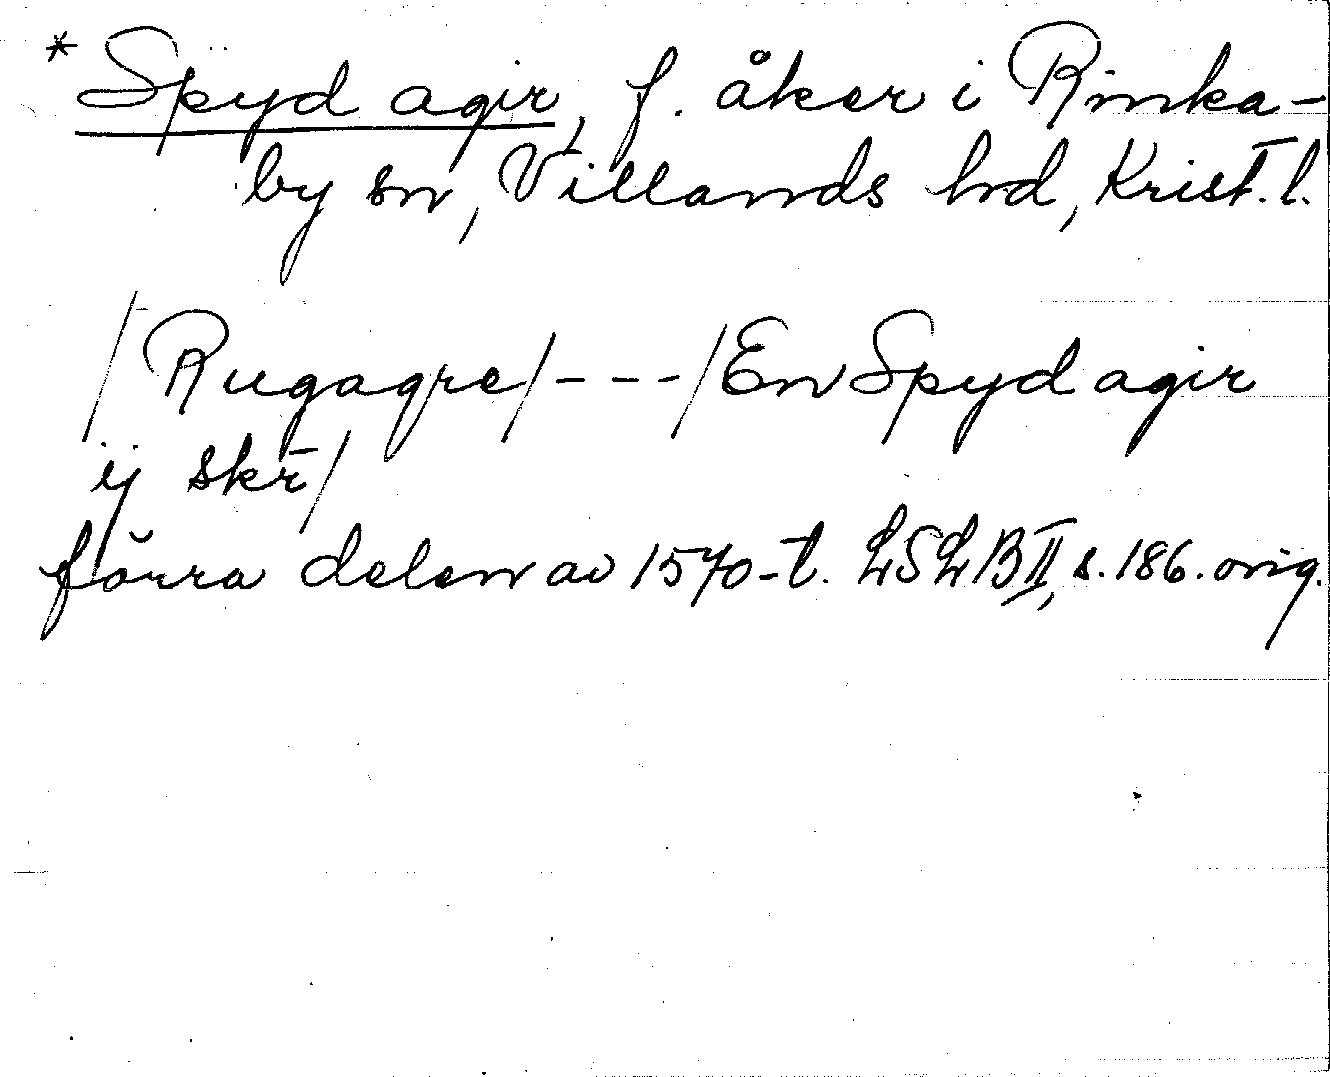 * Spyd agir, f. åker i Rinka-
by sn, Villands hd, Krist. l.
/Rugagre/ - - - /En Spyd agir
ij skr̄/
förra delen av 1570-t. LSLB II, s. 186. orig.